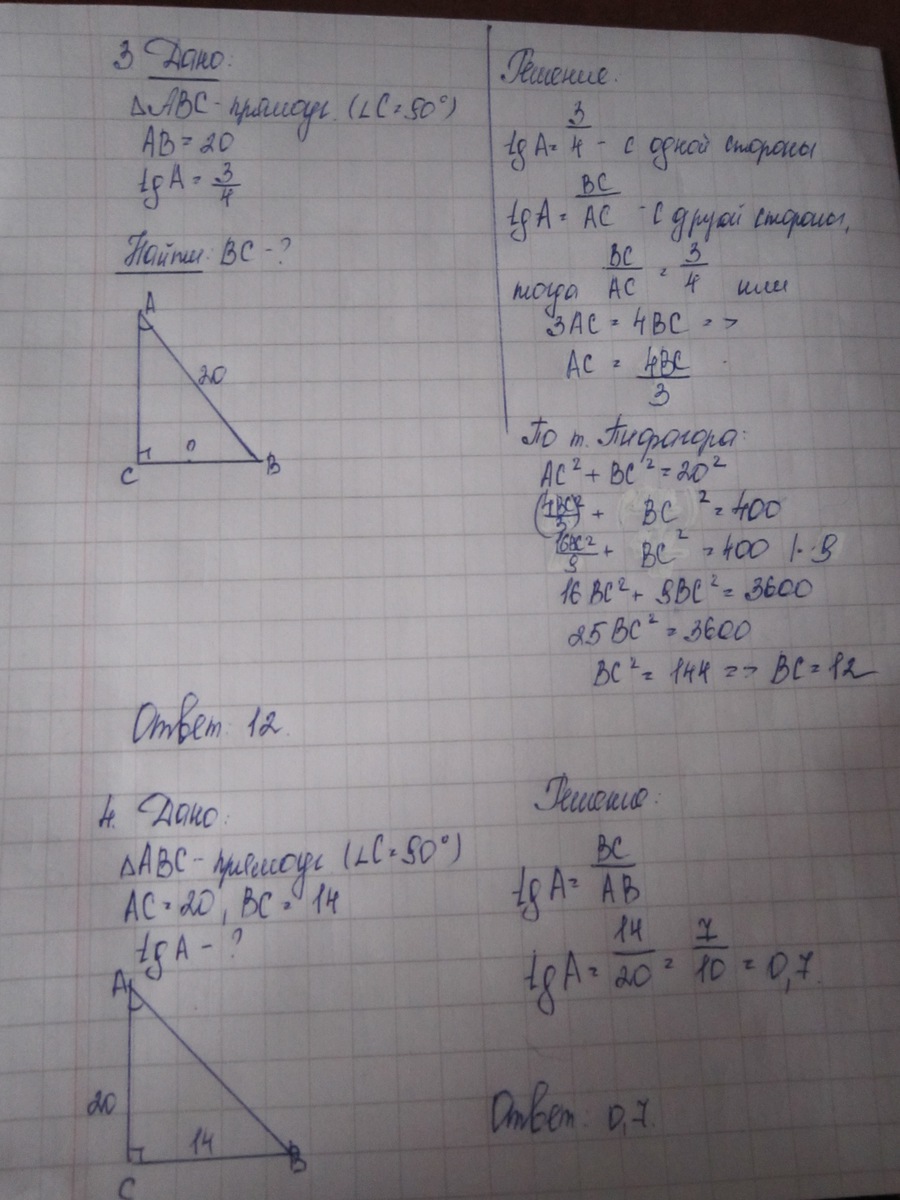 3 Дано:
△ABC - прямоуг. (∠C = 90°)
AB = 20
tg A = 3/4
Найти: BC - ?
A
20
?
C
B
Решение.
tg A = 3/4 - с одной стороны
tg A = BC/AC - с другой стороны,
тогда BC/AC = 3/4 или
3AC = 4BC =>
AC = 4BC/3
По т. Пифагора:
AC² + BC² = 20²
(4BC/3)² + BC² = 400
16BC²/9 + BC² = 400 | · 9
16BC² + 9BC² = 3600
25BC² = 3600
BC² = 144 => BC = 12
Ответ: 12.
4. Дано:
△ABC - прямоуг (∠C = 90°)
AC = 20, BC = 14
tg A - ?
A
20
14
B
C
Решение:
tg A = BC/AB
tg A = 14/20 = 7/10 = 0,7.
Ответ: 0,7.